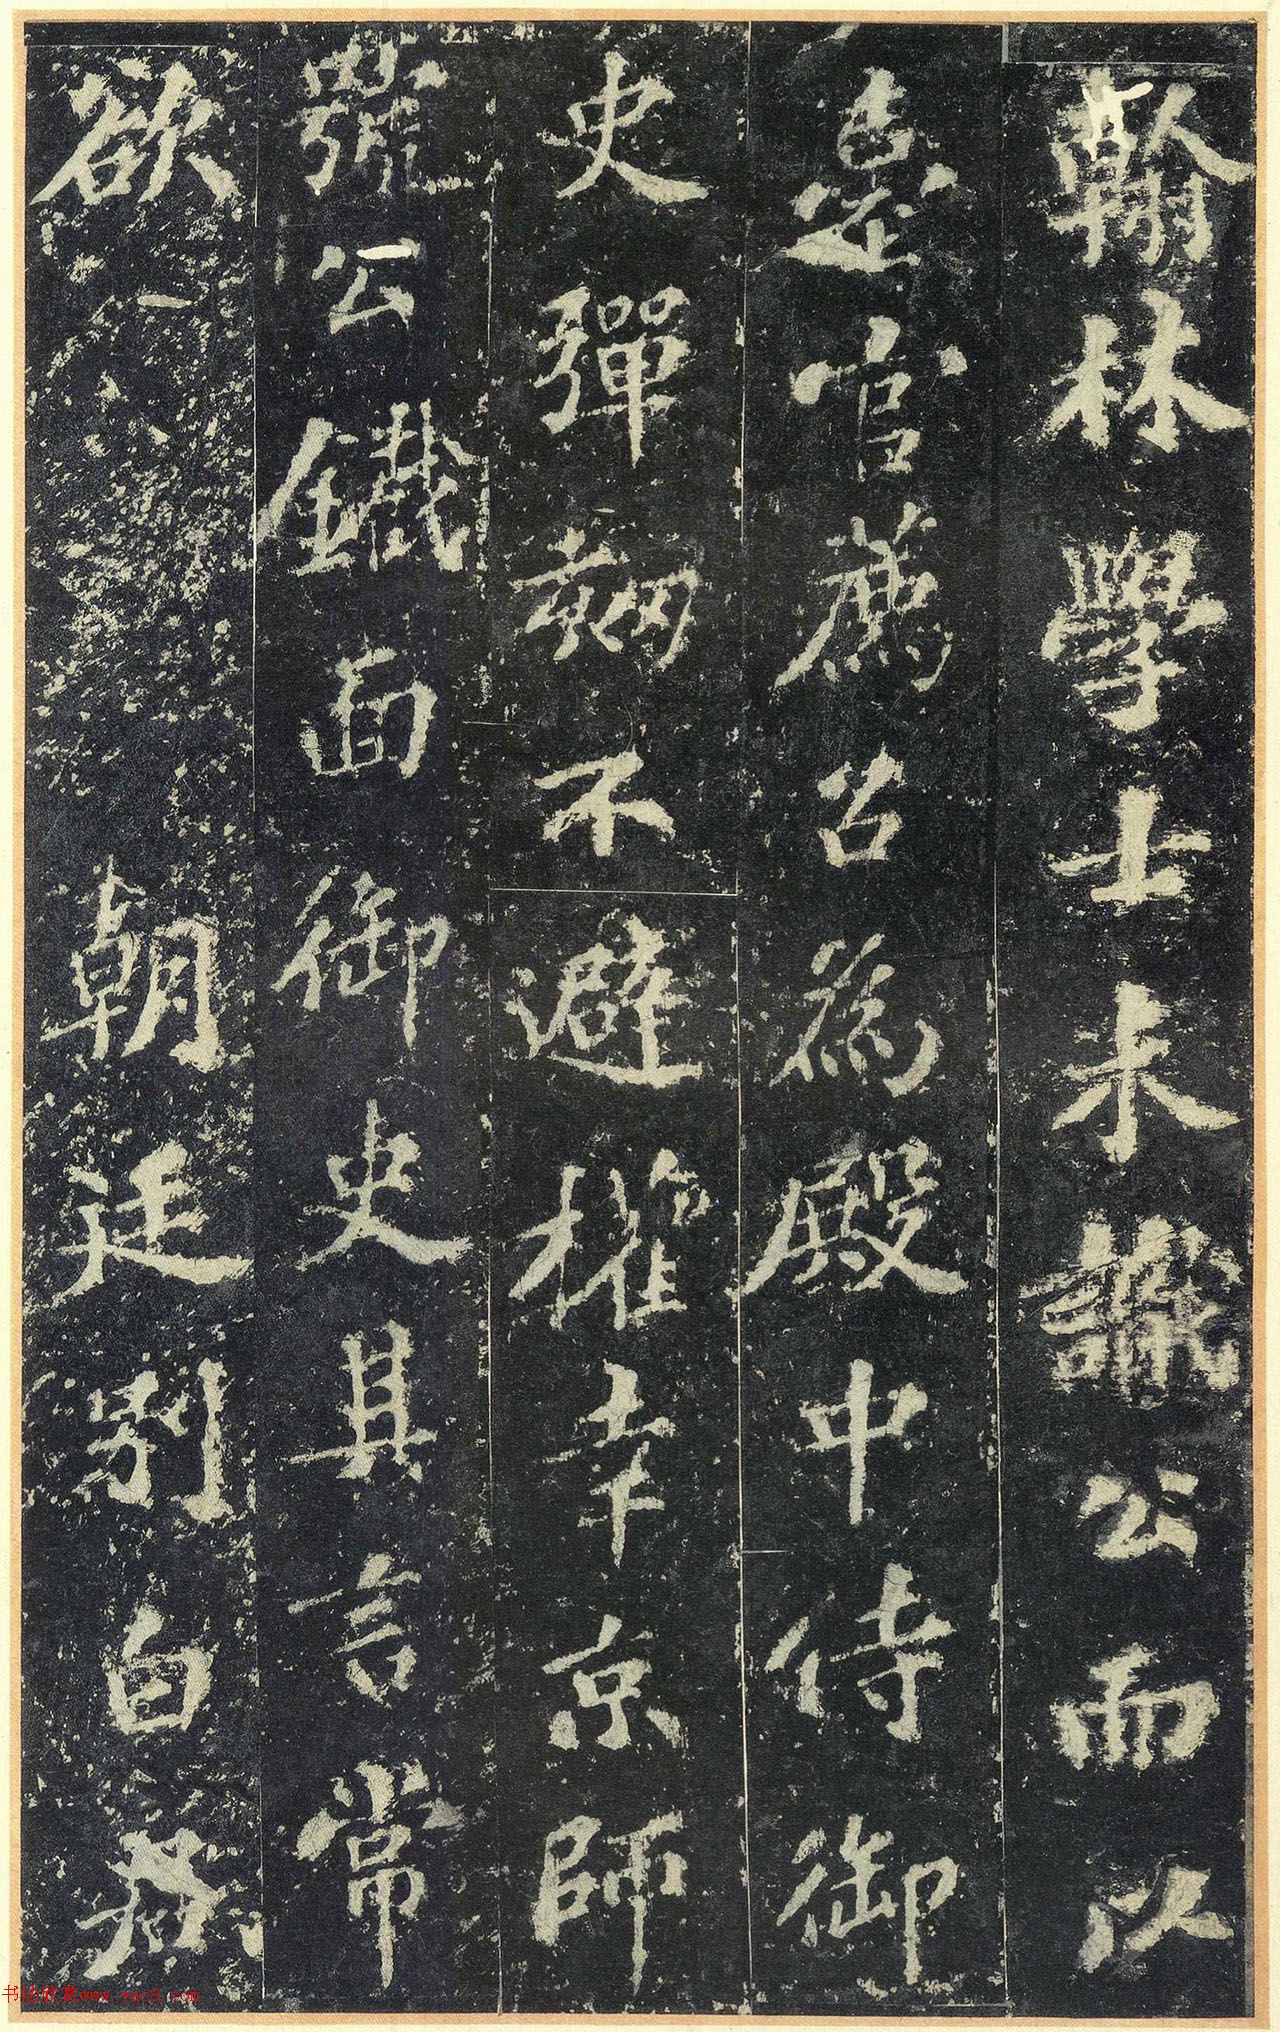 翰林學士未識公而以
臺官薦召為殿中侍御
史彈劾不避權幸京師
號公鐵面御史其言常
欲朝廷別白君
书法欣赏www.yac8.com